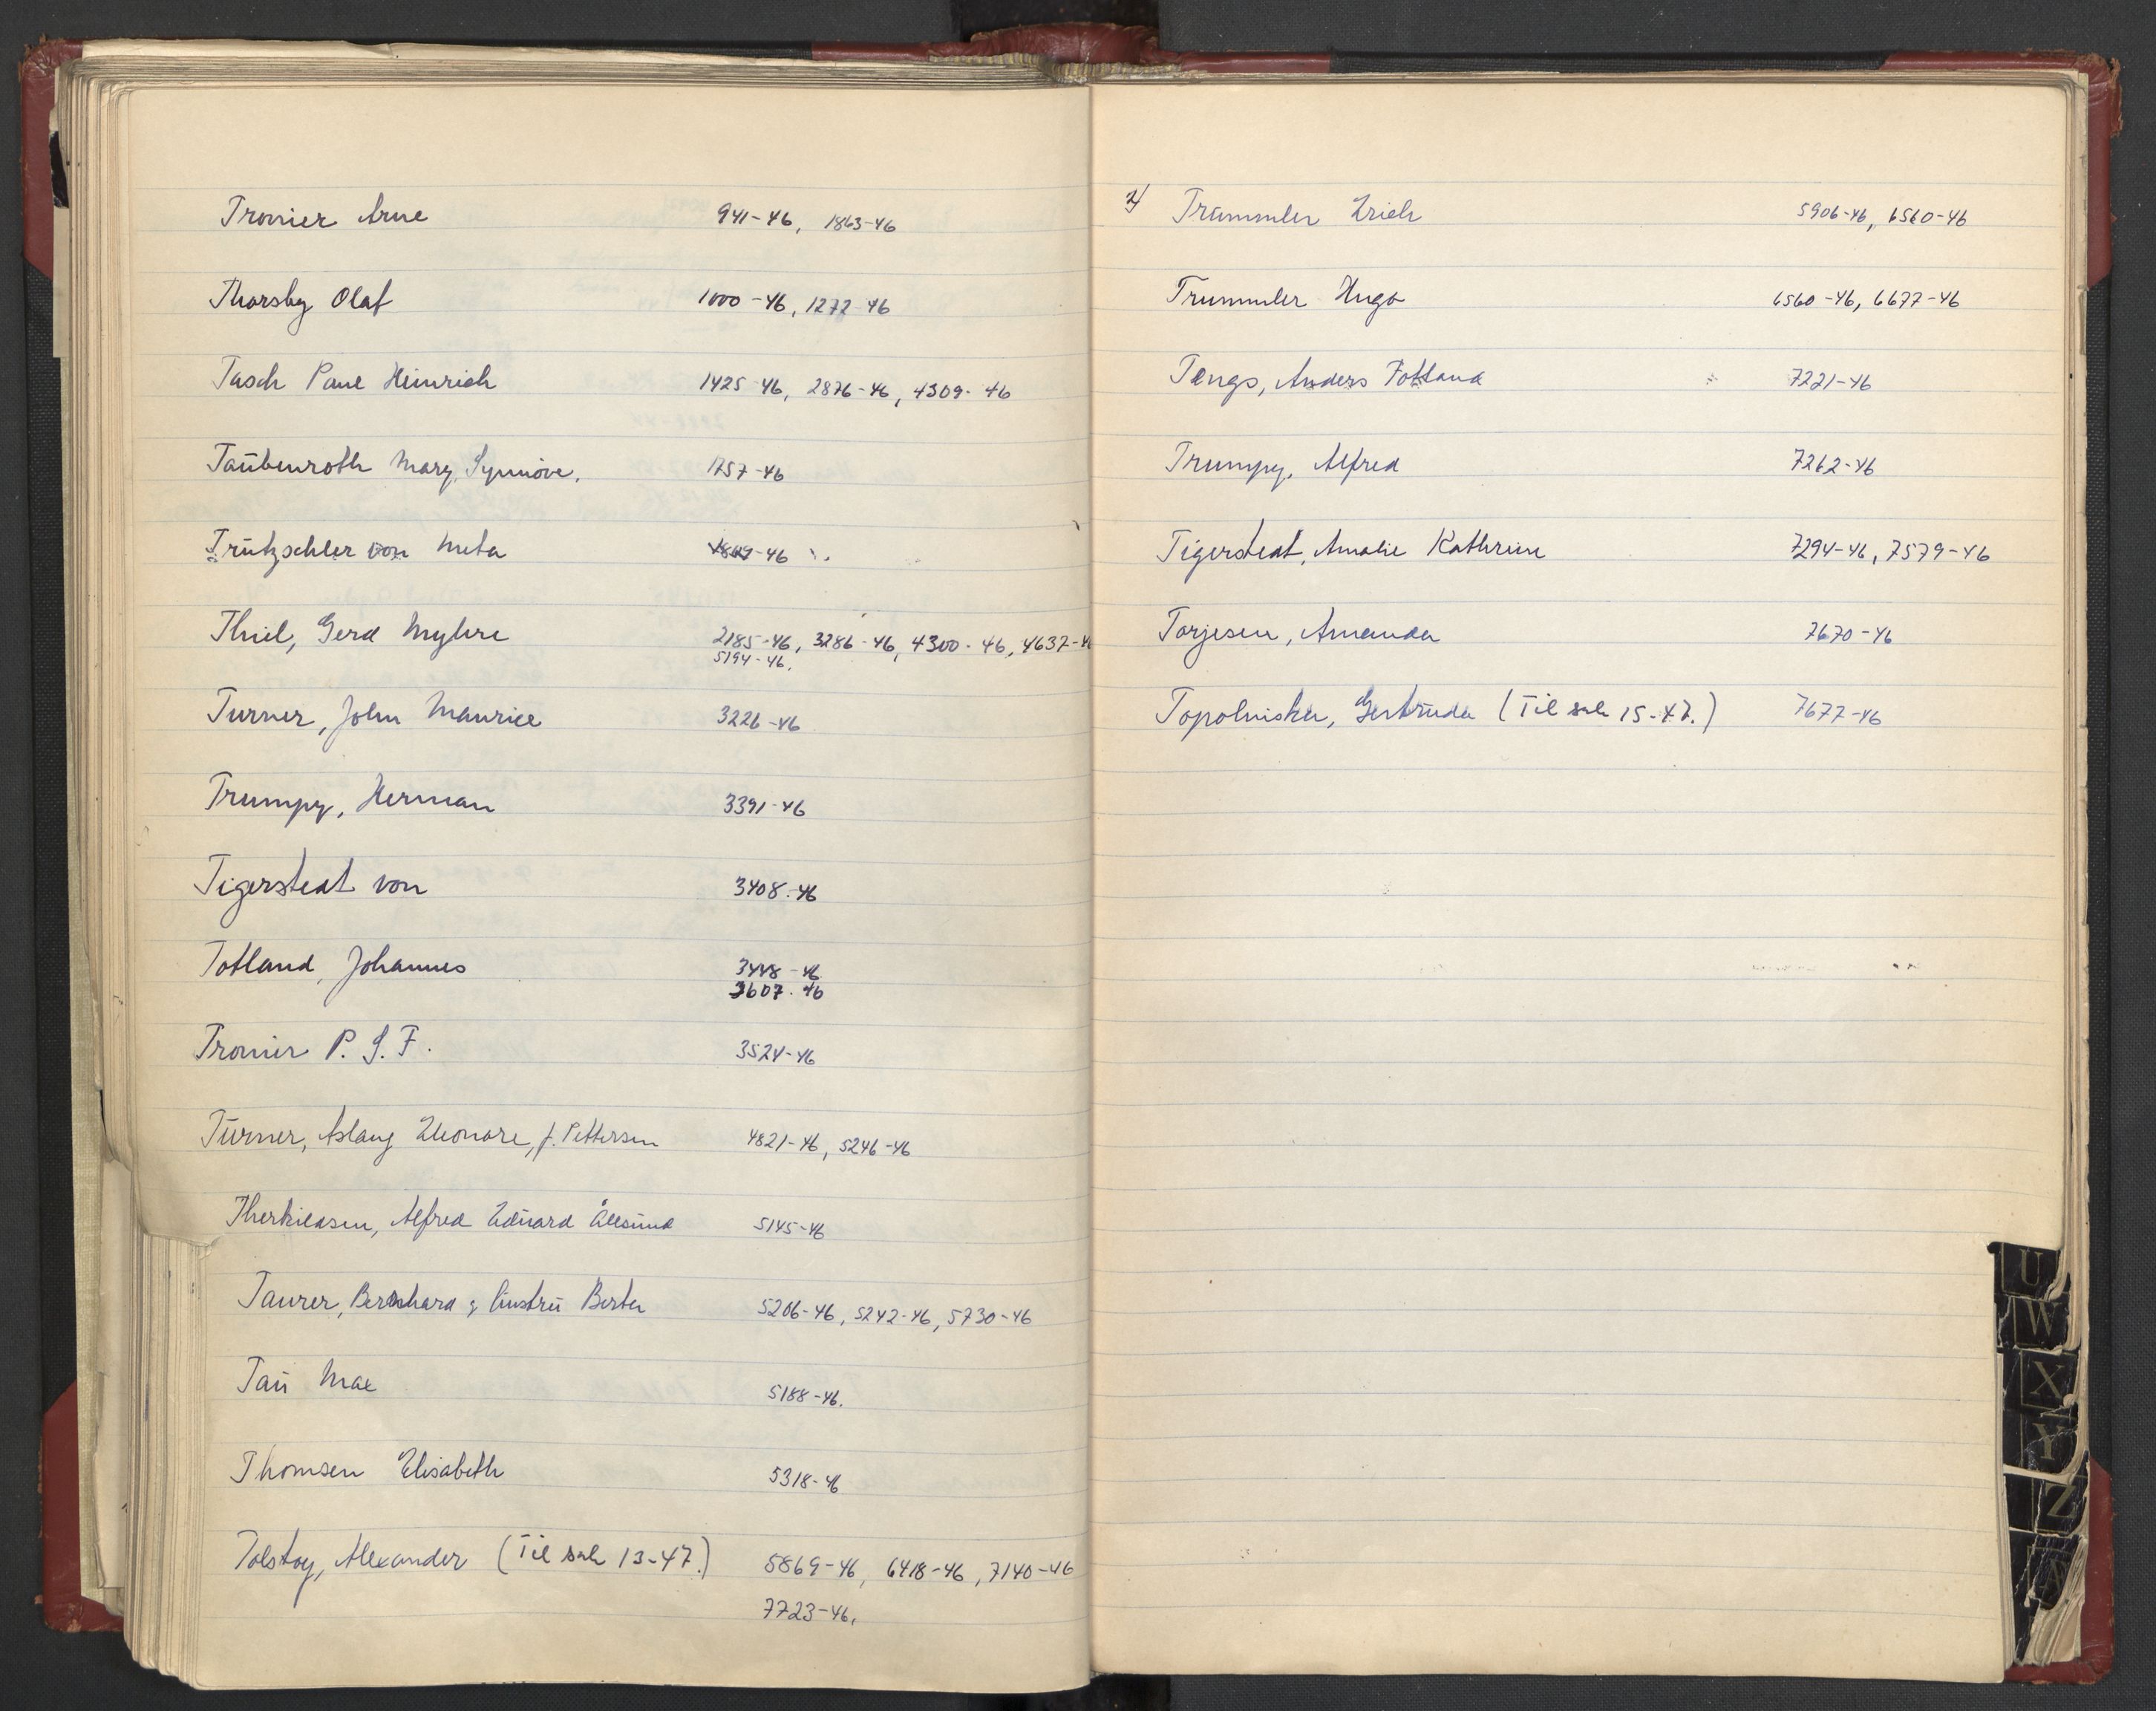 Tronier Arne 941-46, 1863-46
Thorsby Olaf 1000-46, 1272-46
Tasch Paul Heinrich 1425-46, 2876-46, 4309-46
Taubenroth Mary Synnöve. 1757-46
Trützschler von Meta 1849-46
Thiel, Gerd Myhre 2185-46, 3286-46, 4300-46, 4637-46
5194-46.
Turner, John Maurice 3226-46
Trumpy, Herman 3391-46
Tigerstedt von 3408-46
Totland, Johannes 3448-46
3607-46
Tronier P. S. F. 3524-46
Turner, Aslaug Eleonore, f. Pettersen 4821-46, 5246-46
Therkildsen, Alfred Eduard Ålesund 5145-46
Taurer, Bernhard & hustru Berta 5206-46, 5242-46, 5730-46
Tau Max 5188-46.
Thomsen Elisabeth 5318-46
Tolstoy, Alexander (Til sak 13-47.) 5869-46, 6418-46, 7140-46
7723-46.
2) Trummler Erich 5906-46, 6560-46
Trummler Hugo 6560-46, 6677-46
Tengs, Anders Fotland 7221-46
Trumpy, Alfred 7262-46
Tigerstedt, Amalie Kathrine 7294-46, 7579-46
Torjesen, Amanda 7670-46
Topolniska, Gertruda (Til sak 15-47.) 7677-46
U
W
X
Y
Z